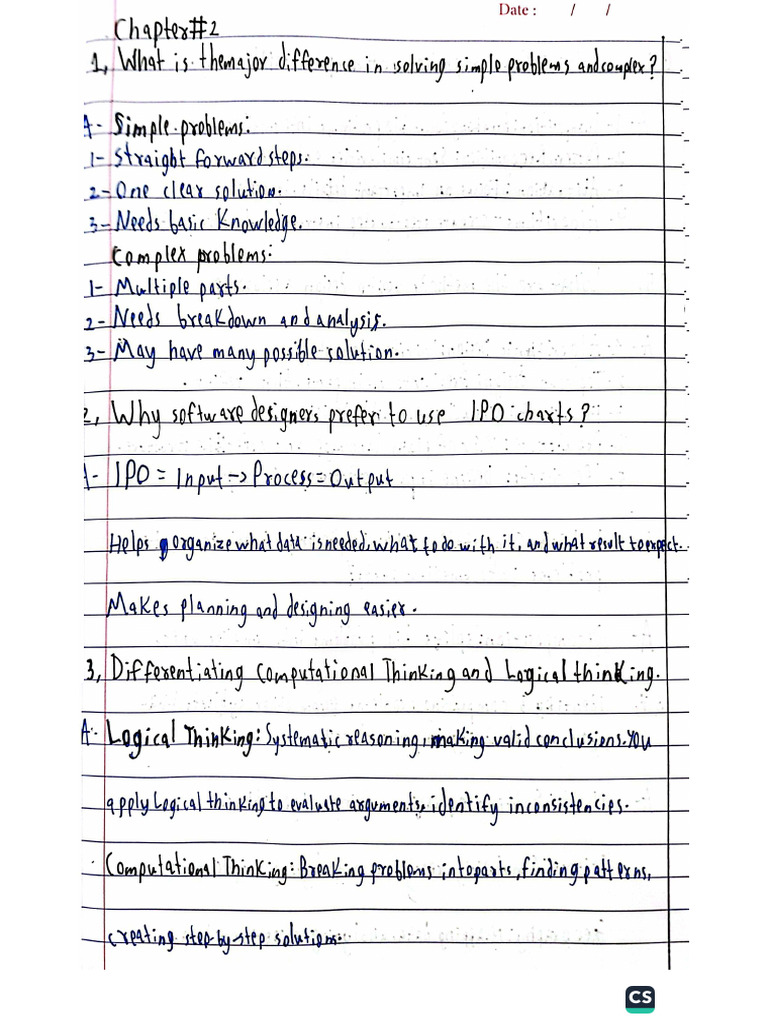 Date : / /
Chapter#2
1, What is the major difference in solving simple problems and complex?
A- Simple problems:
1- Straight forward steps.
2- One clear solution.
3- Needs basic Knowledge.
Complex problems:
1- Multiple parts.
2- Needs breakdown and analysis.
3- May have many possible solution.
2, Why software designers prefer to use IPO charts?
A- IPO = Input -> Process = Output
Helps organize what data is needed, what to do with it, and what result to expect.
Makes planning and designing easier.
3, Differentiating Computational Thinking and Logical thinking.
A- Logical Thinking: Systematic reasoning, making valid conclusions. You
apply Logical thinking to evaluate arguments, identify inconsistencies.
Computational Thinking: Breaking problems into parts, finding patterns,
creating step by step solutions.
CS